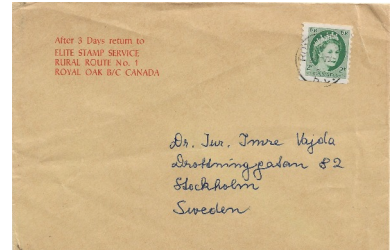 After 3 Days return to
ELITE STAMP SERVICE
RURAL ROUTE No. 1
ROYAL OAK B/C CANADA
Dr. Jur. Imre Vajda
Drottninggatan 82
Stockholm
Sweden